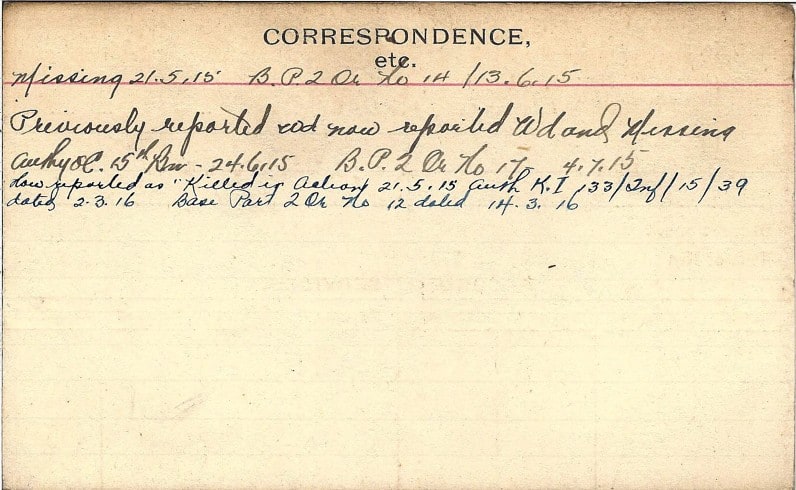 CORRESPONDENCE,
etc.
Missing 21.5.15 B.P.2 Or No 14 /13.6.15
Previously reported wd now reported Wd and Missing
Authy OC. 15th Bn - 24.6.15 B.P.2 Or No 17 4.7.15
Now reported as "Killed in Action 21.5.15 Auth K.I 133/Inf/15/39
dated 2.3.16 Base Part 2 Or No 12 dated 14.3.16